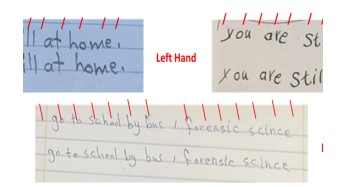 ll at home.
ill at home.
Left Hand
you are st
you are stil
go to school by bus , forensic scince
go to school by bus , forensic scince